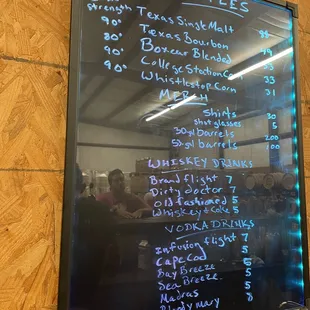 strength
90° Texas Single Malt
80° Texas Bourbon
90° Boxcar Blended
College Station Corn 33
90° Whistlestop Corn 31
MERCH
Shirts 30
shot glasses 5
barrels 200
barrels 100
WHISKEY DRINKS
Brand flight 7
Dirty doctor 7
old fashioned 5
Whiskey + Coke 5
VODKA DRINKS
Infusion flight 7
Cape Cod 5
Bay Breeze 5
Sea Breeze 5
Madras 5
Bloody mary 8